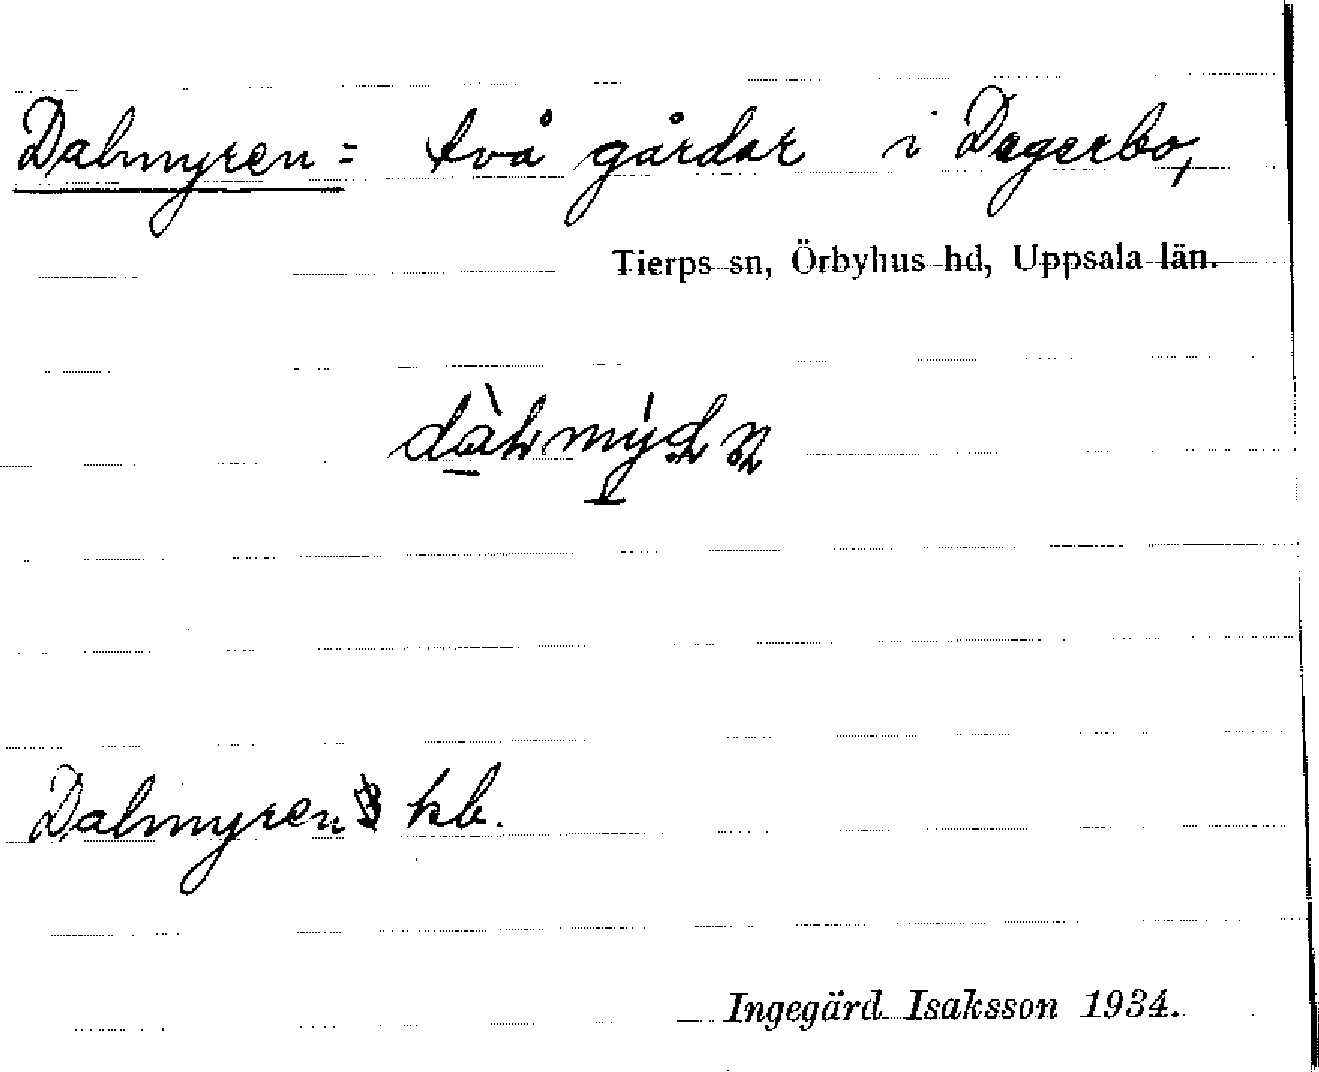 Dalmyren = två gårdar i Dagerbo,
Tierps sn, Örbyhus hd, Uppsala län.
Dalmyren kb.
Ingegärd Isaksson 1934.